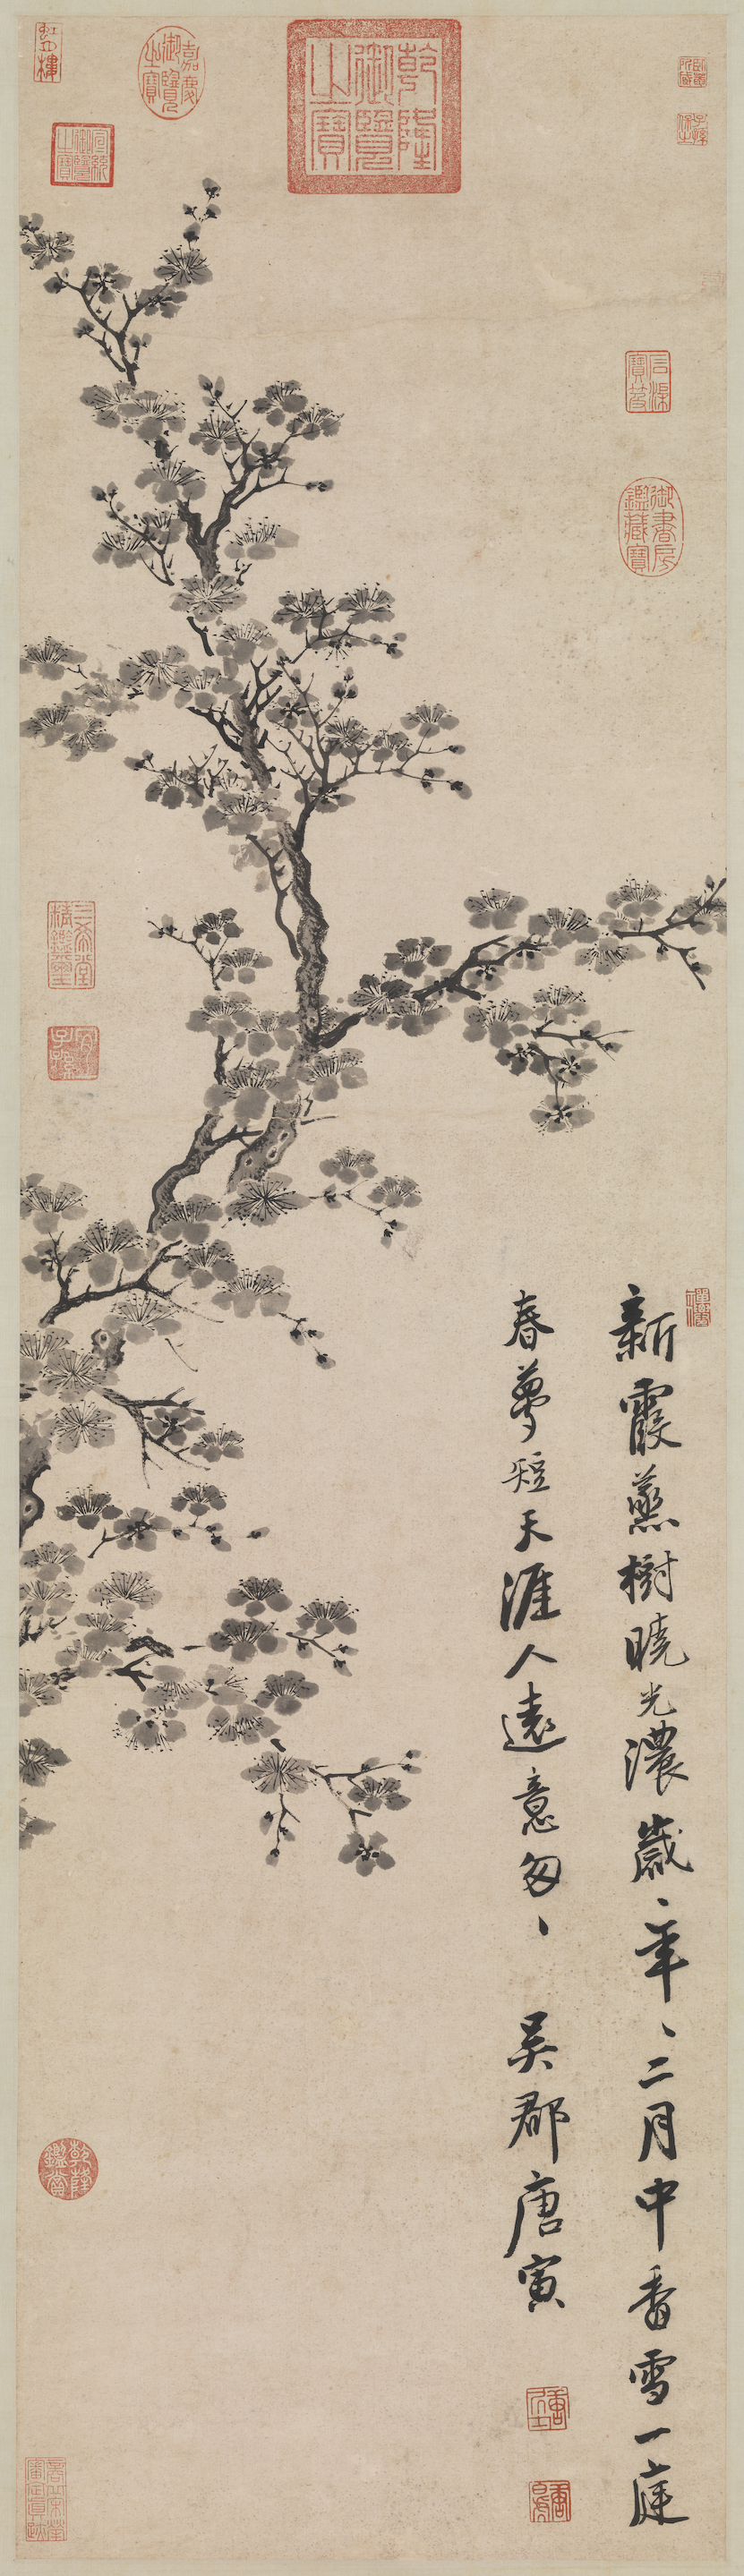 新霞蒸樹曉光濃歲、年、二月中香雪一庭
春夢短天涯人遠意匆、
吳郡唐寅
乾隆御覽之寶
嘉慶御覽之寶
宣統御覽之寶
石渠寶笈
御書房鑑藏寶
三希堂精鑑璽
宜子孫
乾隆鑑賞